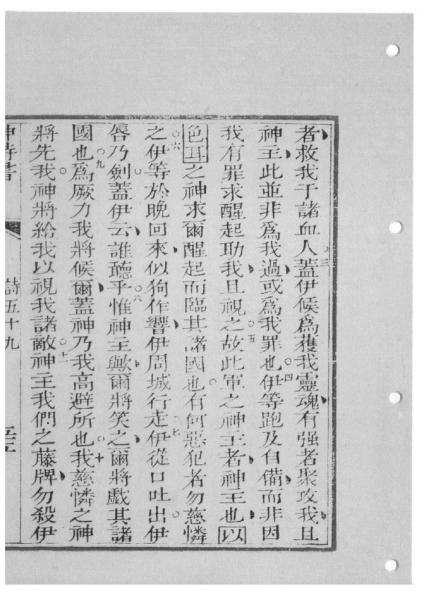 者救我于諸血人蓋伊候爲獲我靈魂有强者聚攻我且
神主此並非爲我過或爲我罪也伊等跑及自備而非因
我有罪求醒起助我且視之故此軍之神主者神主也以
色耳之神求爾醒起而臨其諸國也有何惡犯者勿慈憐
之伊等於晚回來似狗作響伊周城行走伊從口吐出伊
唇乃劍蓋伊云誰聽乎惟神主歟爾將笑之爾將戲其諸
國也爲厥力我將候爾蓋神乃我高避所也我慈憐之神
將先我神將給我以視我諸敵神主我們之藤牌勿殺伊
神詩書 詩五十九